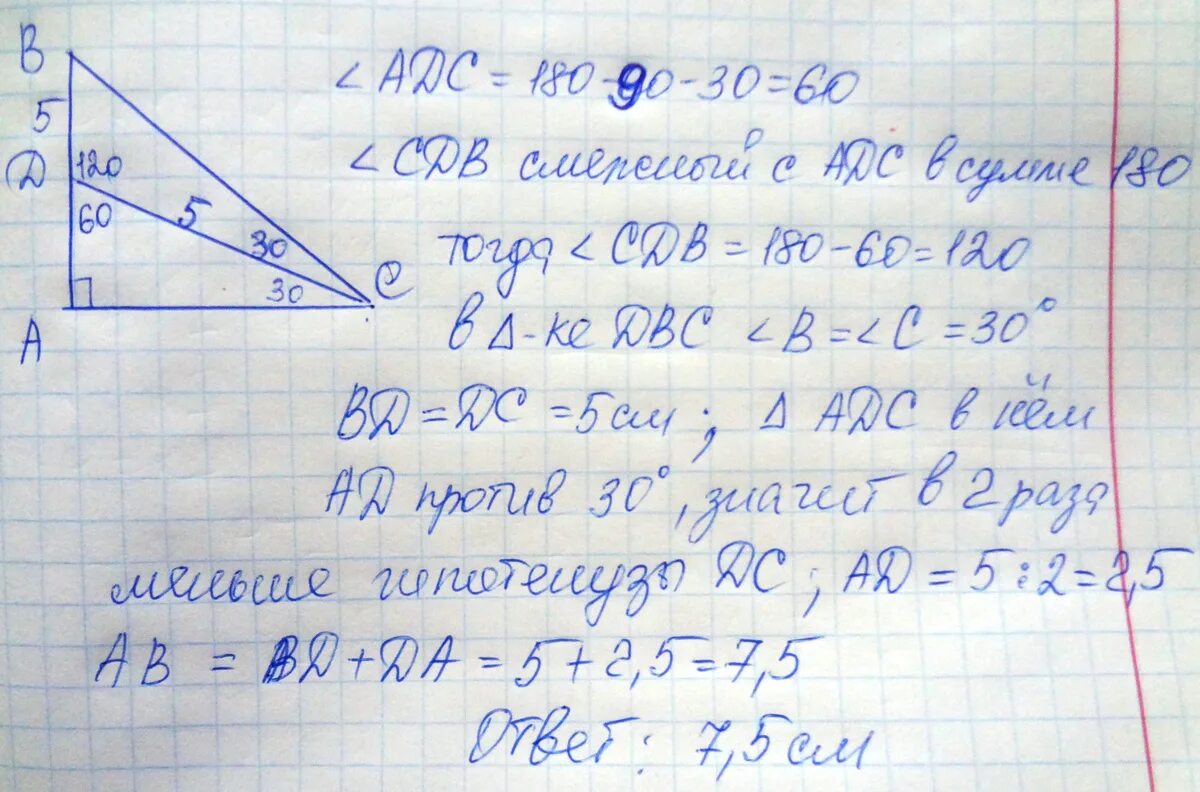 B
5
D 120
60 5
30
30 C
A
∠ADC = 180-90-30=60
∠CDB смежный с ADC в сумме 180
тогда ∠CDB = 180-60=120
в Δ-ке DBC ∠B=∠C=30°
BD=DC=5см; Δ ADC в нём
AD против 30°, значит в 2 раза
меньше гипотенузы DC; AD=5:2=2,5
AB = BD+DA=5+2,5=7,5
Ответ: 7,5см